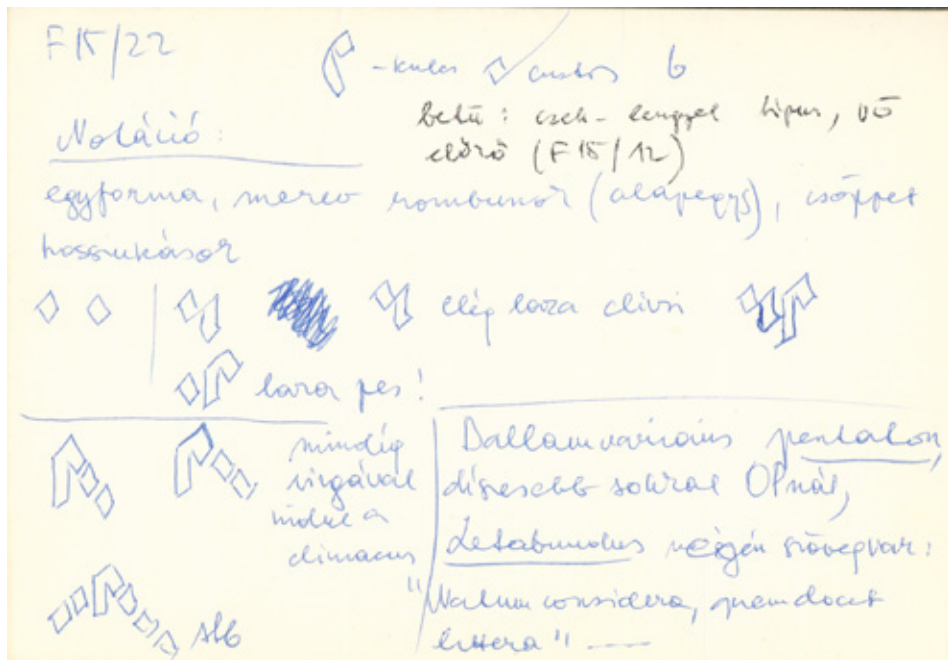 F 15/22
-kulcs custos b
betű: cseh-lengyel típus, vö
előző (F15/12)
Notáció:
egyforma, merev rombuszok (alapegys), csöppet
hosszukásak
elég laza clivis
laza pes!
mindig
virgával
indul a
climacus
stb
Dallamvariáns pentaton,
díszesebb sokkal OPnál,
Letabundus végén szövegvar:
"Natum considera, quem docet
littera" —